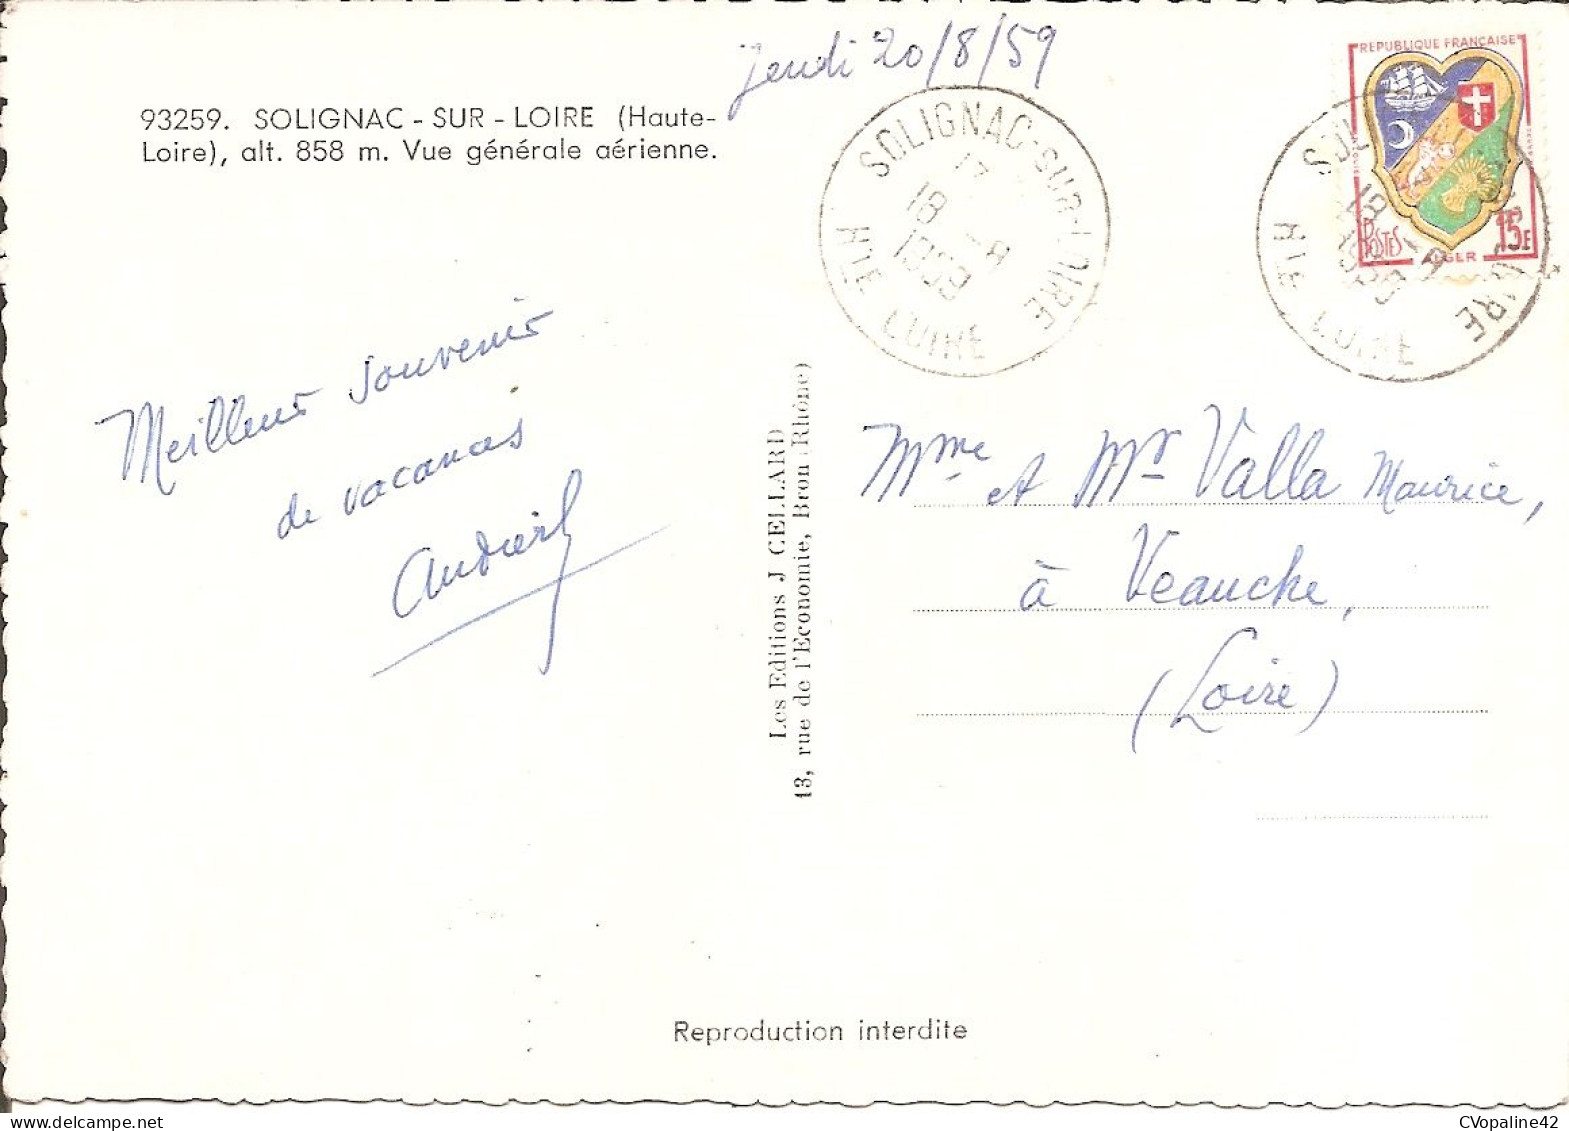 jeudi 20/8/59
93259. SOLIGNAC - SUR - LOIRE (Haute-
Loire), alt. 858 m. Vue générale aérienne.
SOLIGNAC-SUR-LOIRE
17
18 -8
1959
HTE LOIRE
REPUBLIQUE FRANÇAISE
POSTES
ALGER
15F
18 -8
1959
HTE LOIRE
Meilleur souvenir
de vacances
Les Editions J CELLARD
13, rue de l'Economie, Bron (Rhône)
Mme et Mr Valla Maurice,
à Veauche,
(Loire)
Reproduction interdite
CVopaline42